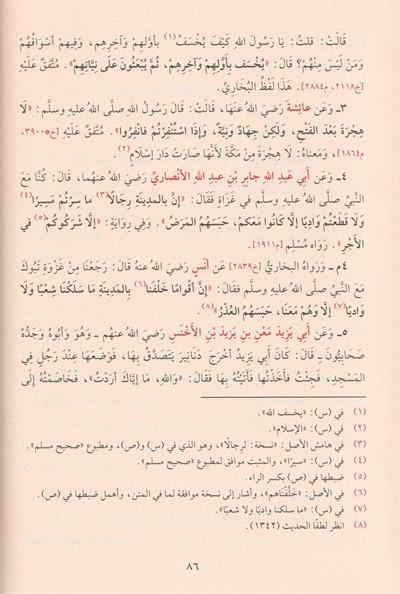 قَالَتْ: قلتُ: يَا رَسُولَ اللهِ كَيْفَ يُخْسَفُ(١) بأوَّلِهِم وَآخِرِهِم، وَفِيهِم أسْوَاقُهُم
وَمَنْ لَيْسَ مِنْهُمْ؟ قَالَ: «يُخْسَف بِأَوَّلِهِم وَآخِرِهِم، ثُمَّ يُبْعَثُونَ عَلَى نِيَّاتِهِم». مُتَّفَق عَلَيْهِ
[خ٢١١٨، م٢٨٨٤]. هَذَا لَفْظُ البُخَارِيِّ.
٣ـ وَعَن عائِشةَ رَضِيَ اللهُ عنهَا، قَالَتْ: قَالَ رَسُولُ اللهِ صلَّى اللهُ عليه وسلَّم: «لَا
هِجْرَةَ بَعْدَ الفَتْحِ، وَلَكِنْ جِهَادٌ وَنِيَّةٌ، وَإذَا اسْتُنْفِرْتُم فَانْفِرُوا». مُتَّفَق عَلَيْهِ [خ٣٩٠٠،
م١٨٦٤]، وَمَعناهُ: لَا هِجْرَةَ مِنْ مَكَّةَ لأَنَّهَا صَارَتْ دَارَ إسْلَامٍ(٢).
٤ـ وَعَن أبي عَبدِ اللهِ جابِرِ بْنِ عبدِ اللهِ الأنْصاريِّ رَضِيَ اللهُ عنهُما، قَالَ: كُنَّا مَعَ
النَّبيِّ صلَّى اللهُ عليه وسلَّم في غَزَاةٍ فَقَالَ: «إنَّ بالمدِينَةِ رِجَالًا(٣) ما سِرْتُمْ مَسِيرًا(٤)
وَلَا قَطَعْتُمْ وَادِيًا إلَّا كَانُوا مَعَكم، حَبَسَهُمُ المَرَضُ». وَفي رِوَايَة: «إلَّا شَرَكُوكُم(٥) في
الأَجْرِ». رَوَاهُ مُسْلِم [م١٩١١].
٤م ـ وَرَواهُ البخاريُّ [خ٢٨٣٩] عَن أنَسٍ رَضِيَ اللهُ عَنهُ قَالَ: رَجَعْنَا مِن غَزْوَةِ تَبُوكَ
مَعَ النَّبيِّ صلَّى اللهُ عليه وسلَّم فَقَالَ: «إنَّ أقْوامًا خَلْفَنَا(٦) بالمَدِينَةِ مَا سَلَكْنَا شِعْبًا وَلَا
وَادِيًا(٧) إلَّا وَهُم مَعَنَا، حَبَسَهُمُ العُذْرُ»(٨).
٥ـ وَعَن أبي يَزِيدَ مَعْنِ بنِ يَزِيدَ بْنِ الأخْنَسِ رَضِيَ اللهُ عنهم ـ وَهُوَ وَأبُوهُ وَجَدُّهُ
صَحَابِيُّونَ ـ قَالَ: كَانَ أبي يَزِيدُ أخْرَجَ دَنَانِيرَ يَتَصَدَّقُ بِهَا، فَوَضَعَهَا عِنْدَ رَجُلٍ فِي
المَسْجِدِ، فَجِئْتُ فأخَذْتُهَا فأتَيْتُهُ بِهَا فَقَالَ: «وَاللهِ، مَا إيَّاكَ أرَدْتُ»، فَخَاصَمْتُهُ إلَى
(١) في (س): «يخسف الله».
(٢) في (س): «الإسلام».
(٣) في هامش الأصل: «نسخة: لرجالًا»، وهو الذي في (س) و(ص)، ومطبوع «صحيح مسلم».
(٤) في (س): «سيرًا»، والمثبت موافق لمطبوع «صحيح مسلم».
(٥) ضبطها في (ص) بكسر الراء.
(٦) في الأصل: «خَلَّفْنَاهم»، وأشار إلى نسخة موافقة لما في المتن، وأهمل ضبطها في (ص).
(٧) في (س): «ما سلكنا واديًا ولا شعبًا».
(٨) انظر لطفًا الحديث (١٣٤٢).
٨٦